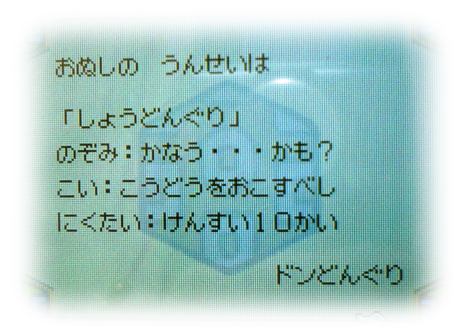 おぬしの　うんせいは
「しょうどんぐり」
のぞみ：かなう・・・かも？
こい：こうどうをおこすべし
にくたい：けんすい１０かい
ドンどんぐり